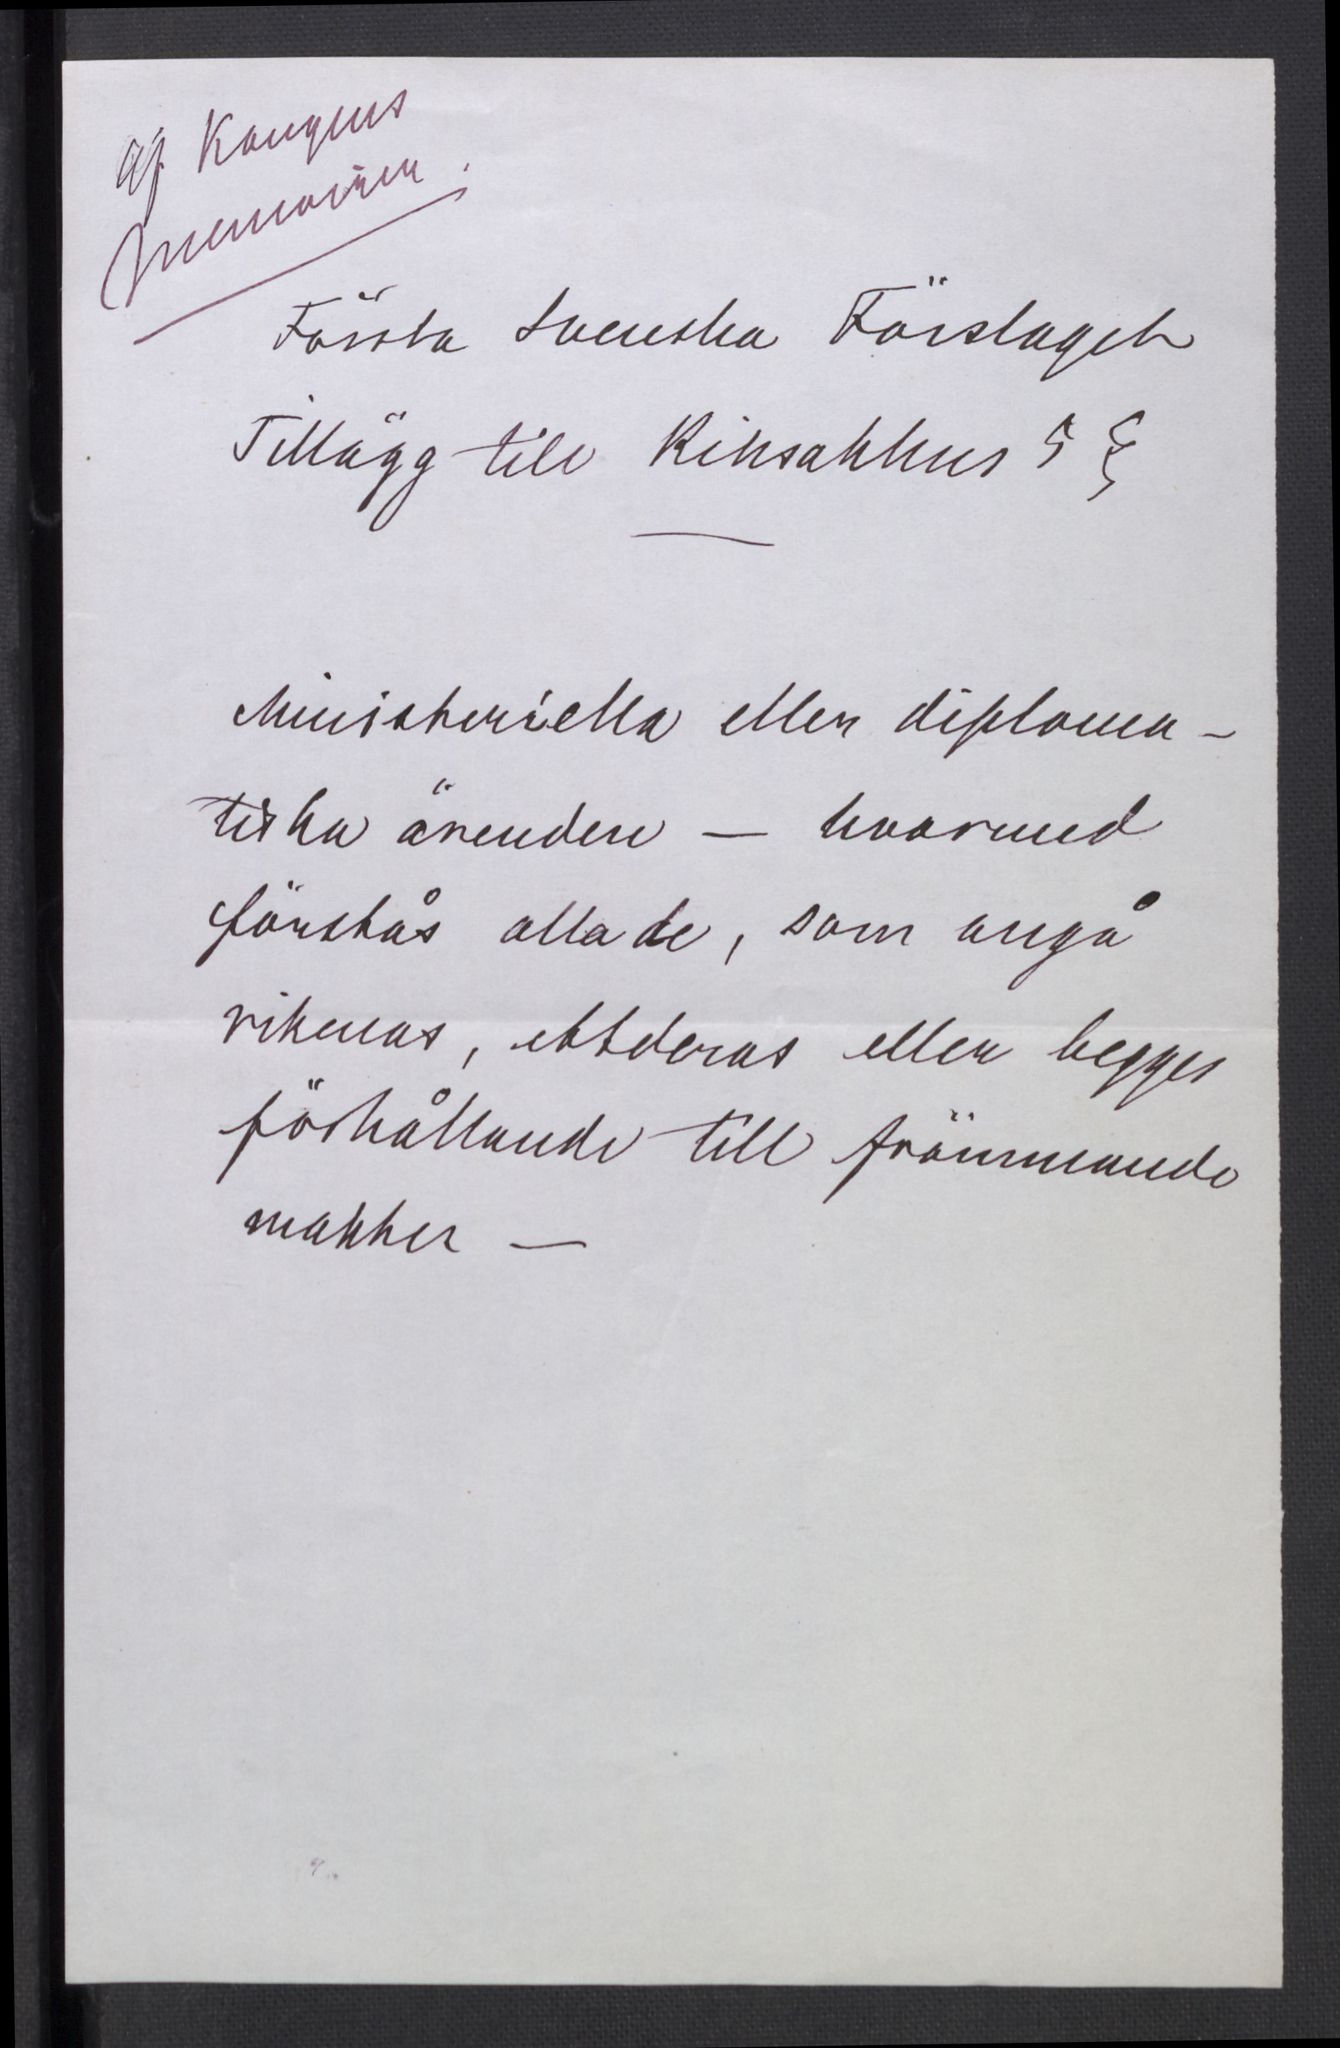 af Kongens
Memoiren.
Första Svenska Förslaget
Tillägg till Riksaktens 5 §
Ministeriella eller diploma-
tiska ärenden — hvarmed
förstås alla de, som angå
rikenas, ettderas eller begges
förhållande till främmande
makter —